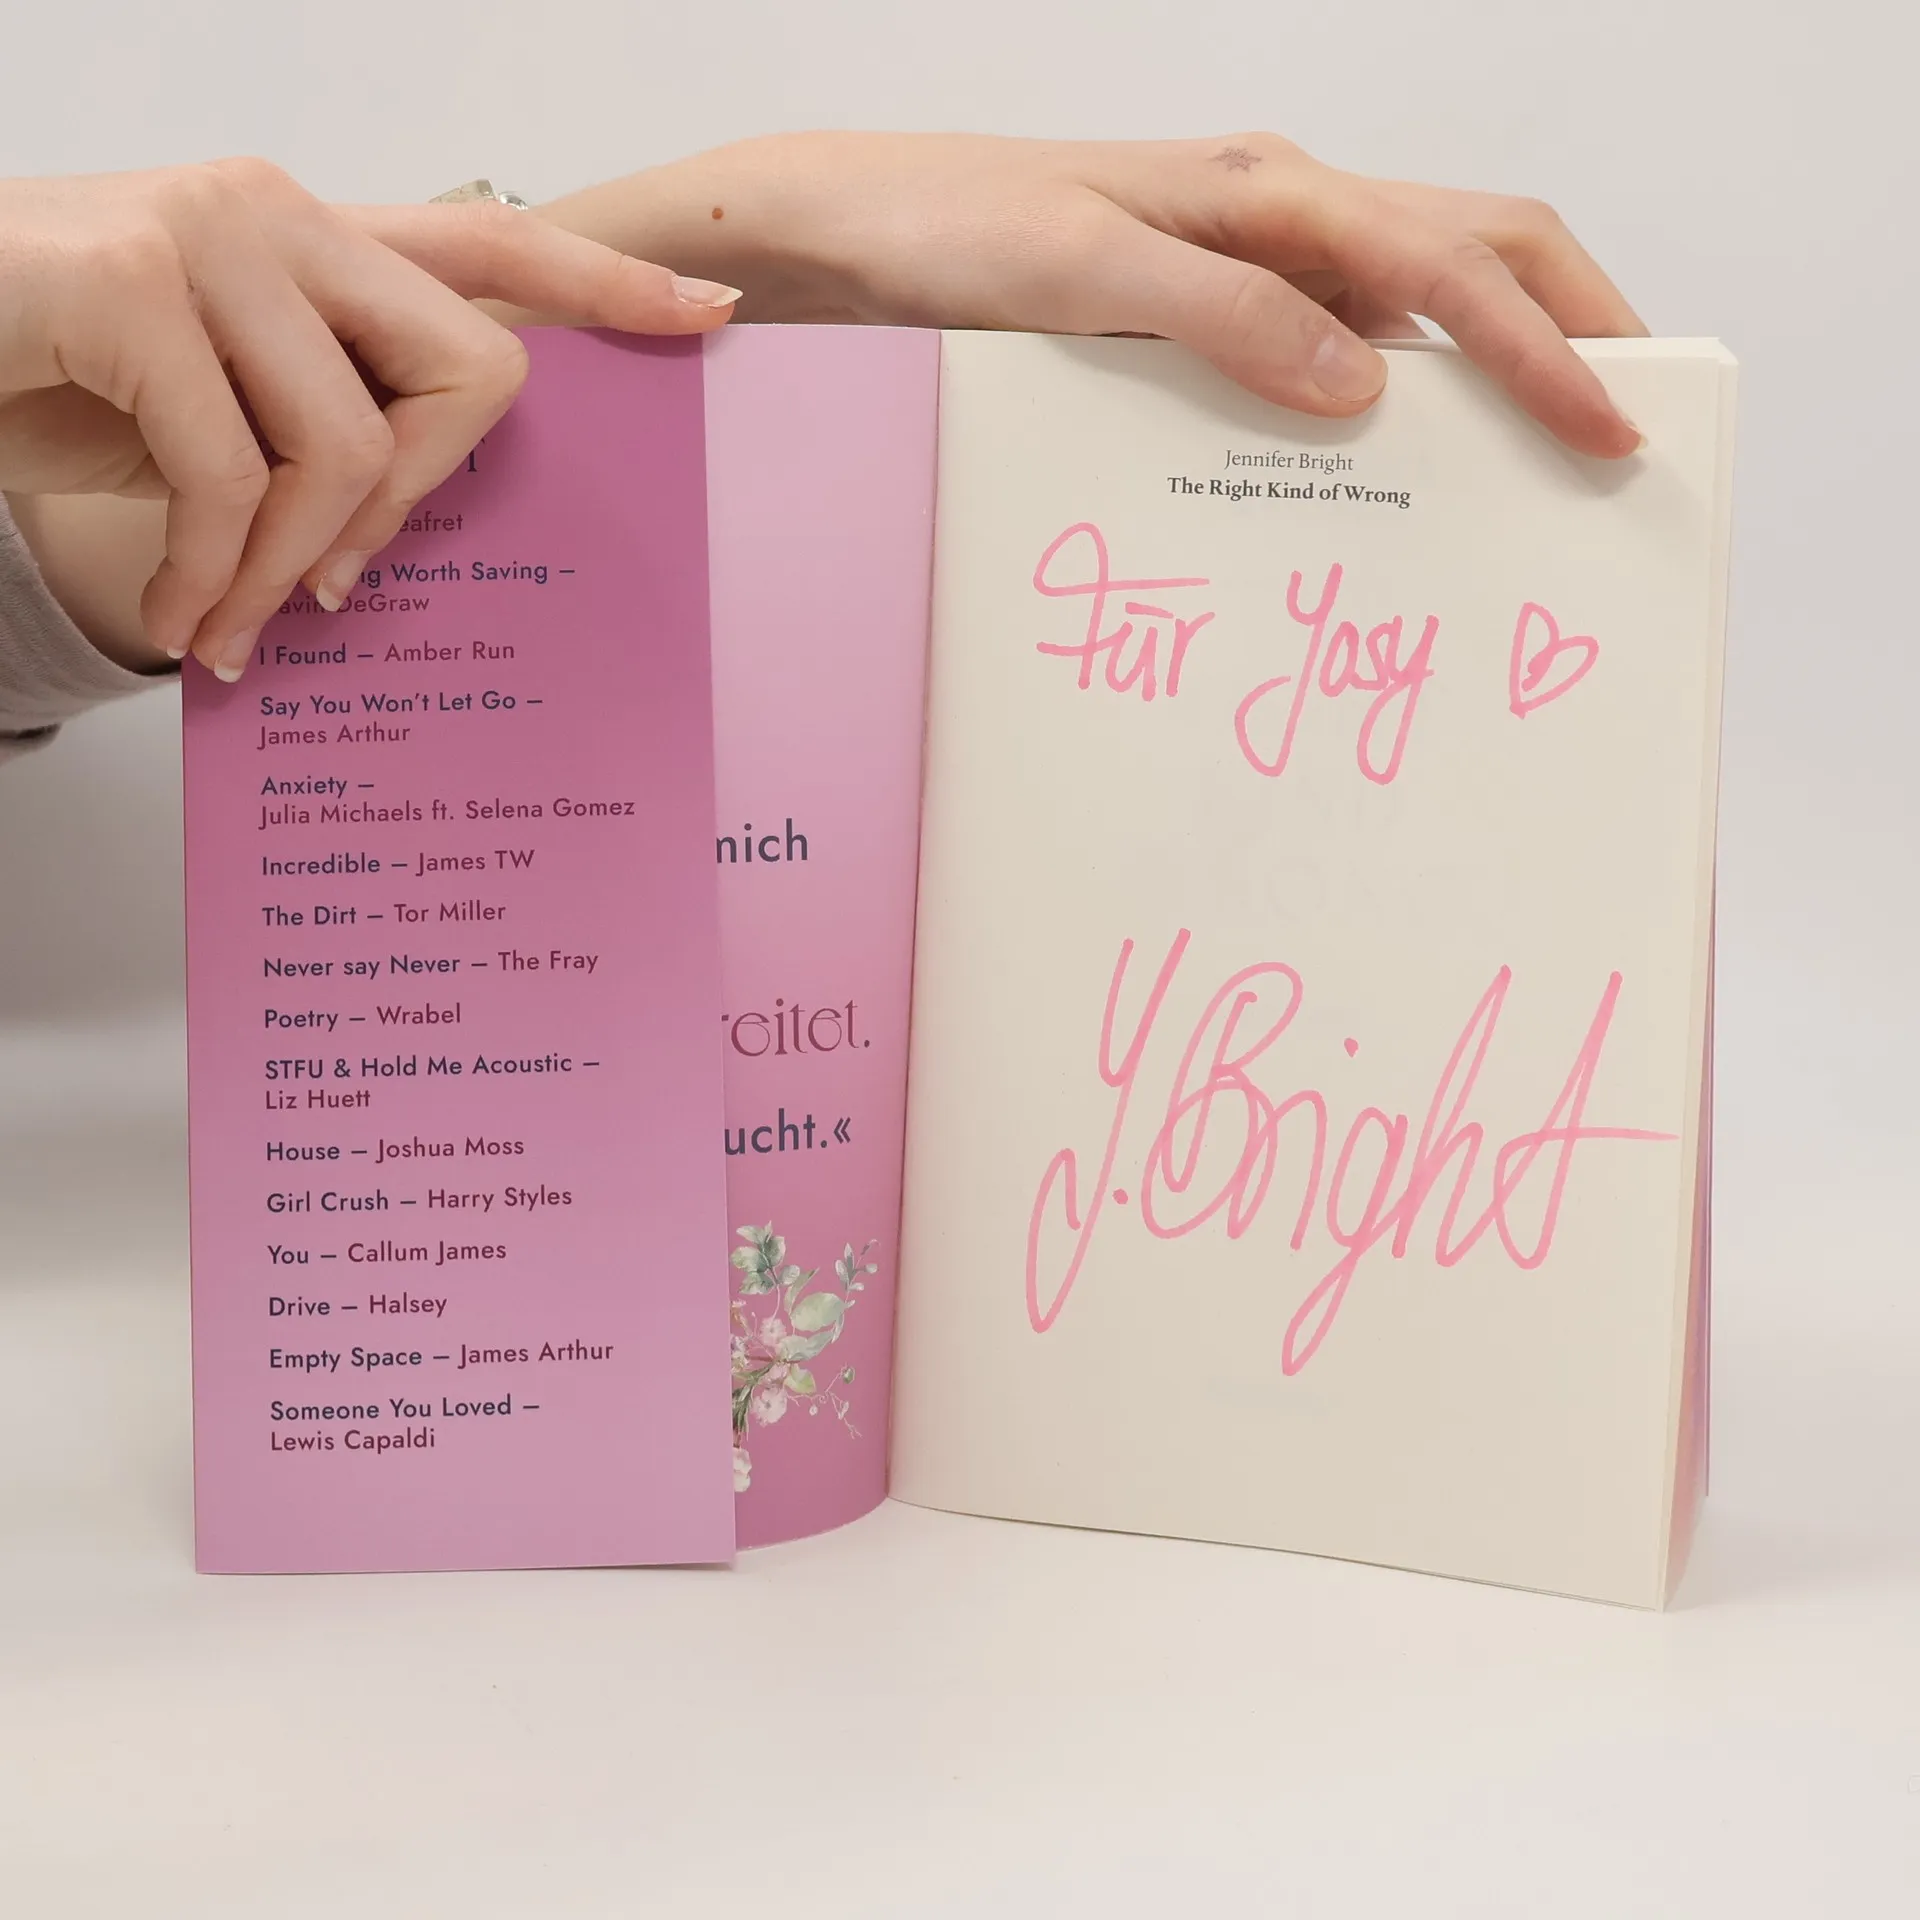 Worth Saving –
DeGraw
I Found – Amber Run
Say You Won't Let Go –
James Arthur
Anxiety –
Julia Michaels ft. Selena Gomez
Incredible – James TW
The Dirt – Tor Miller
Never say Never – The Fray
Poetry – Wrabel
STFU & Hold Me Acoustic –
Liz Huett
House – Joshua Moss
Girl Crush – Harry Styles
You – Callum James
Drive – Halsey
Empty Space – James Arthur
Someone You Loved –
Lewis Capaldi
mich
reitet.
ucht.«
Jennifer Bright
The Right Kind of Wrong
Für Yosy
J. Bright